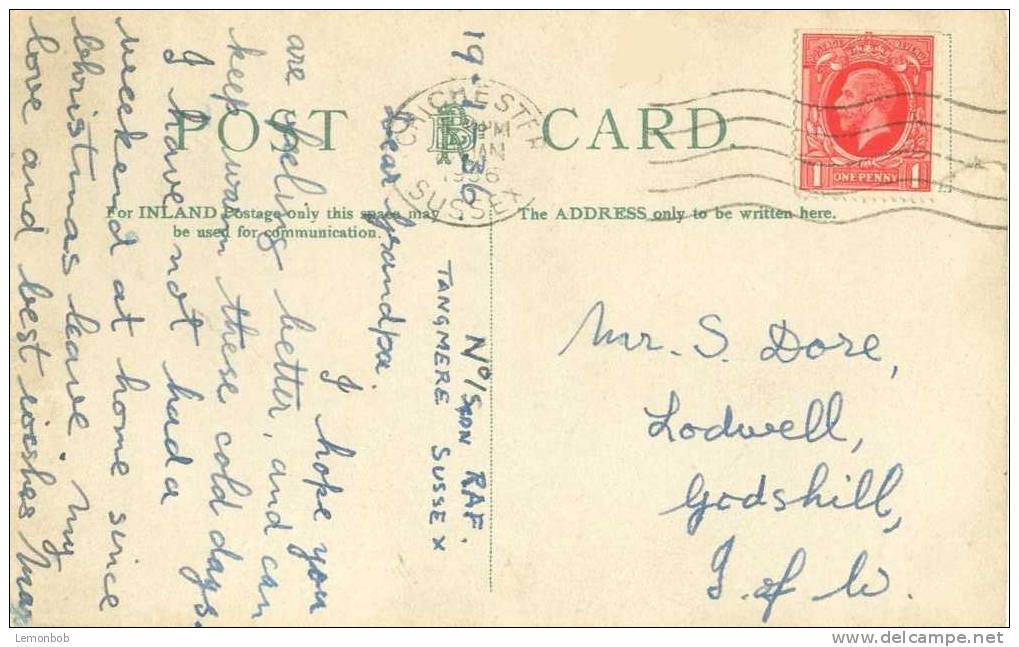 POST CARD.
For INLAND Postage only this space may
be used for communication.
The ADDRESS only to be written here.
CHICHESTER
PM
JAN
1936
SUSSEX
POSTAGE REVENUE
1 ONE PENNY 1
No/SQDN RAF.
TANGMERE SUSSEX
19.1.36
Dear Grandpa.
I hope you
are feeling better, and can
keep warm these cold days.
I have not had a
weekend at home since
Christmas leave. My
love and best wishes
Mr. S. Dore,
Lodwell,
Godshill,
I. of W.
Lemonbob
www.delcampe.net